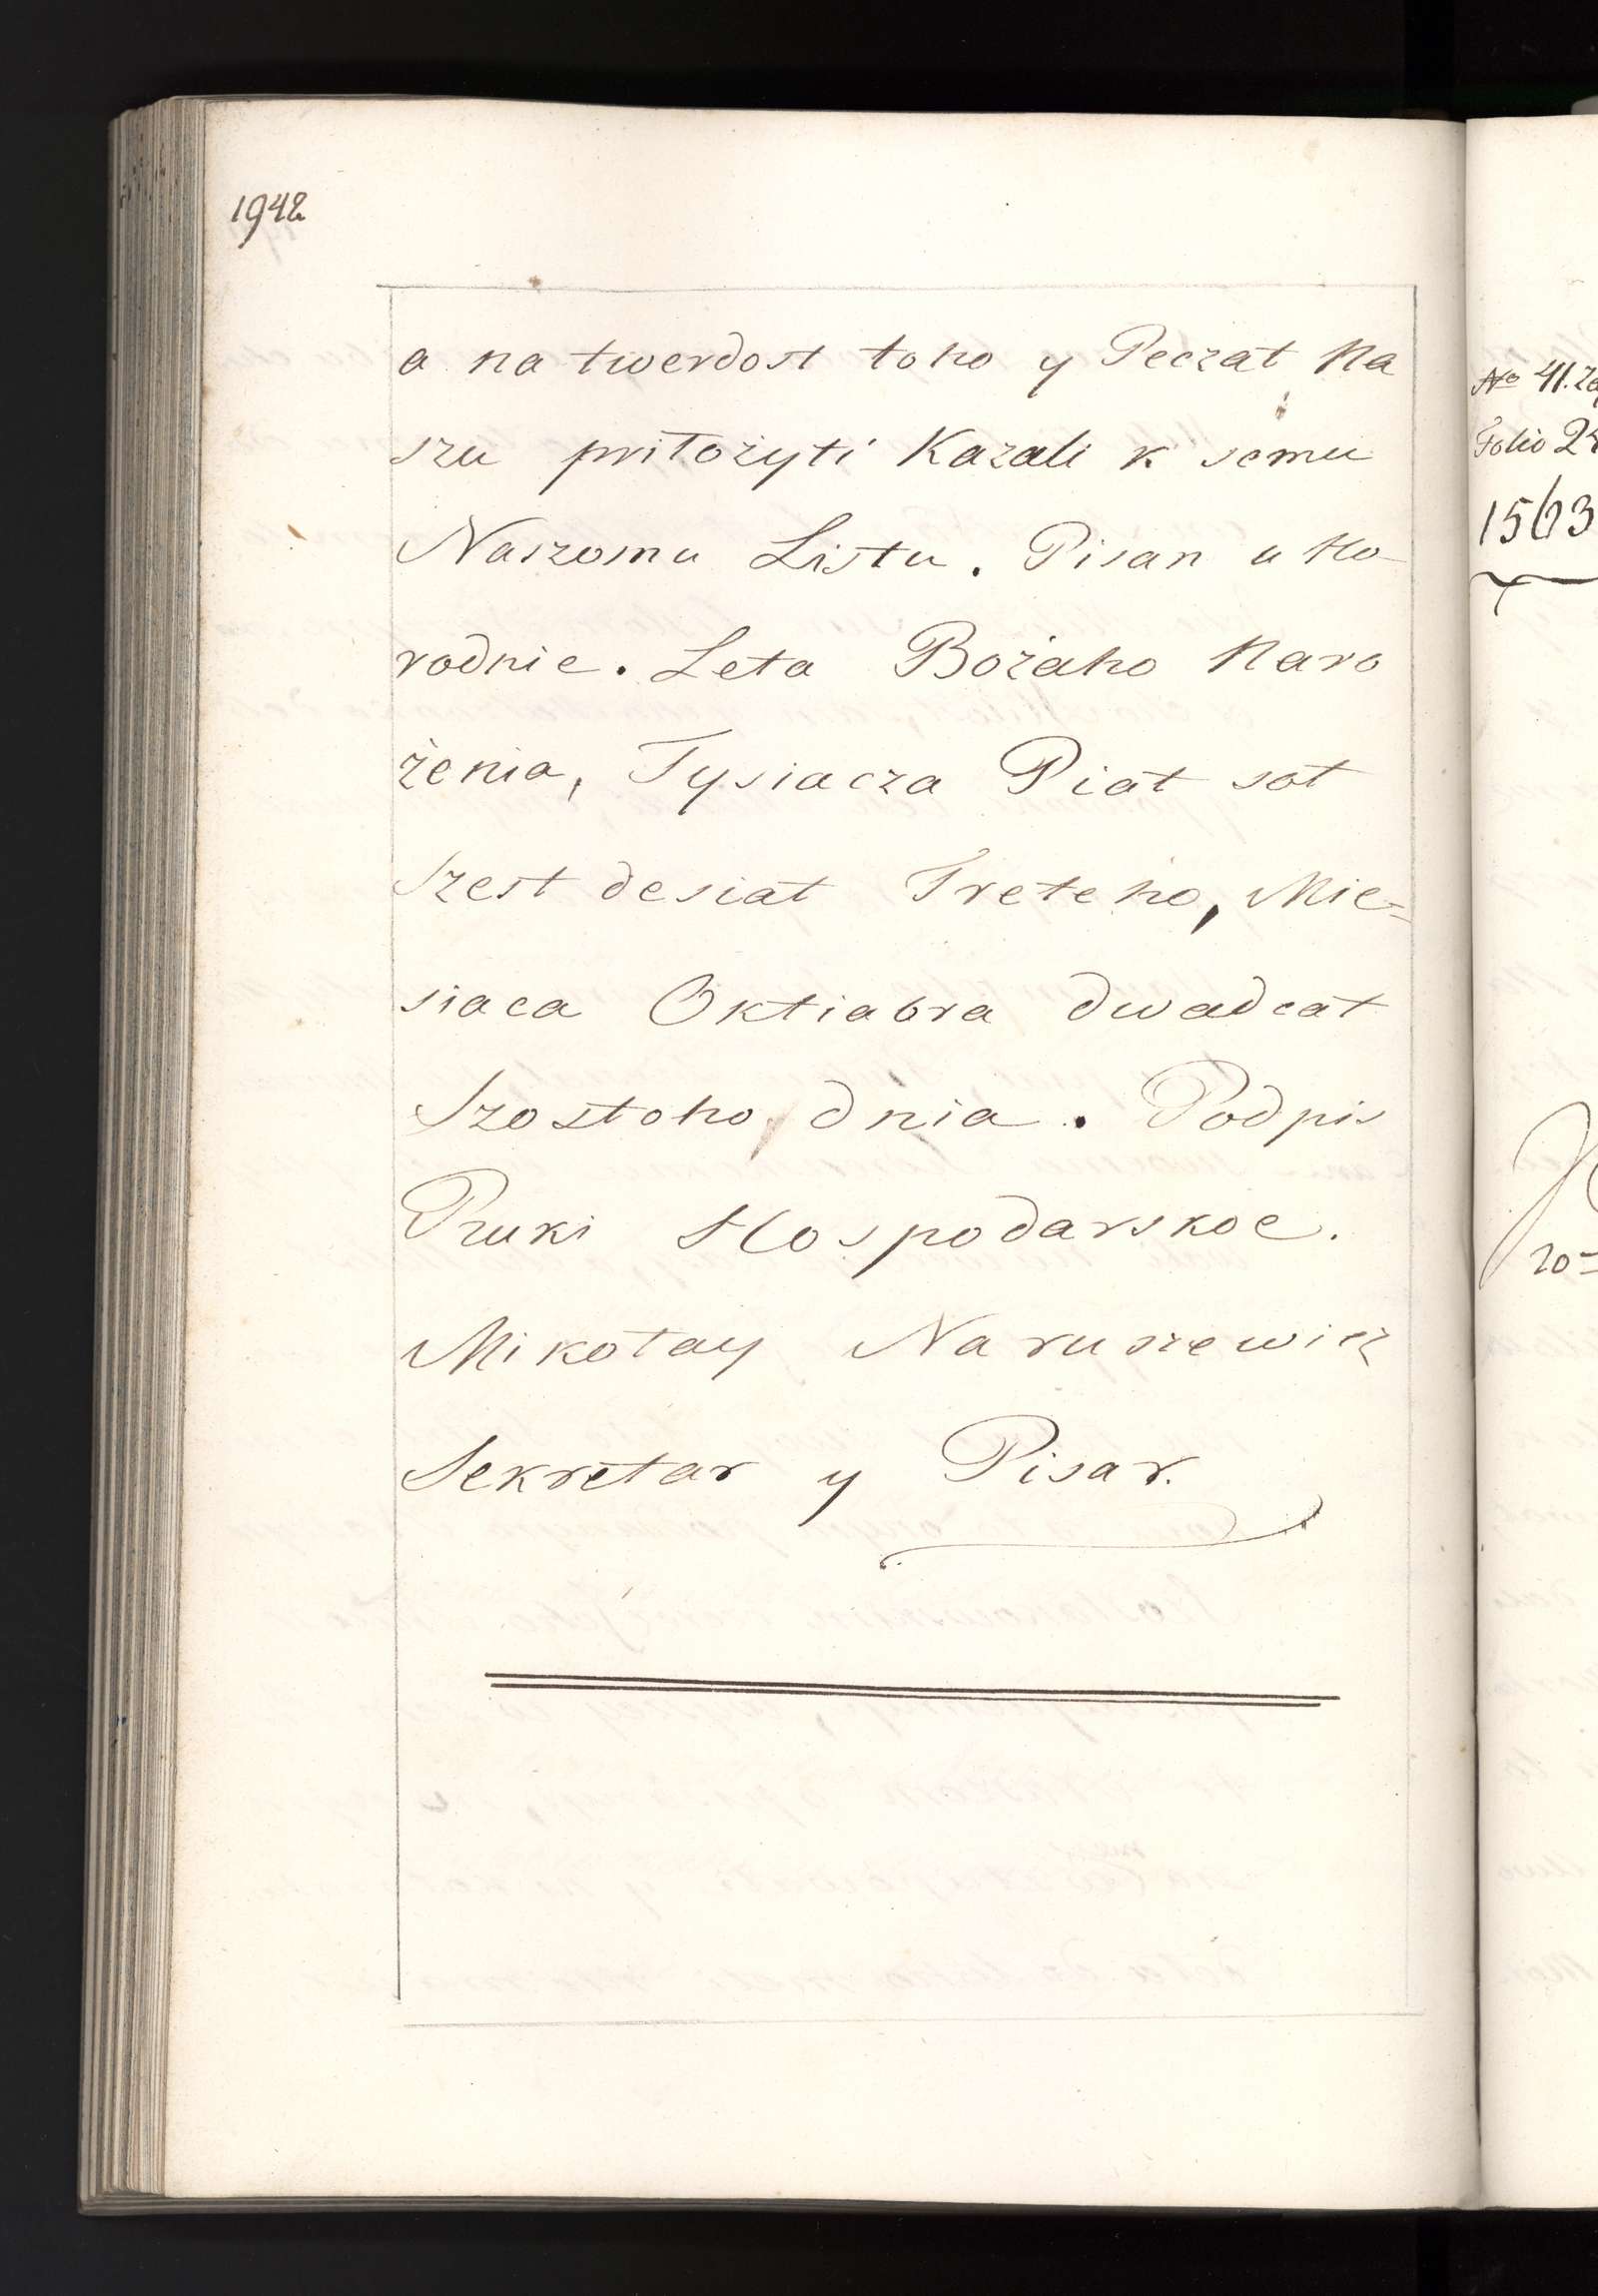 1942
a na twerdost toho y Peczat Na
szu priłożyti Kazali k semu
Naszomu Listu. Pisan u Ho-
rodnie. Leta Bożaho Naro
żenia, Tysiacza Piat sot
szest desiat Treteho, Mie=
siaca Oktiabra dwadcat
szostoho dnia. Podpis
Pruki Hospodarskoe.
Mikołay Naruszewicz
Sekretar y Pisar.
No 41.
Folio
1563